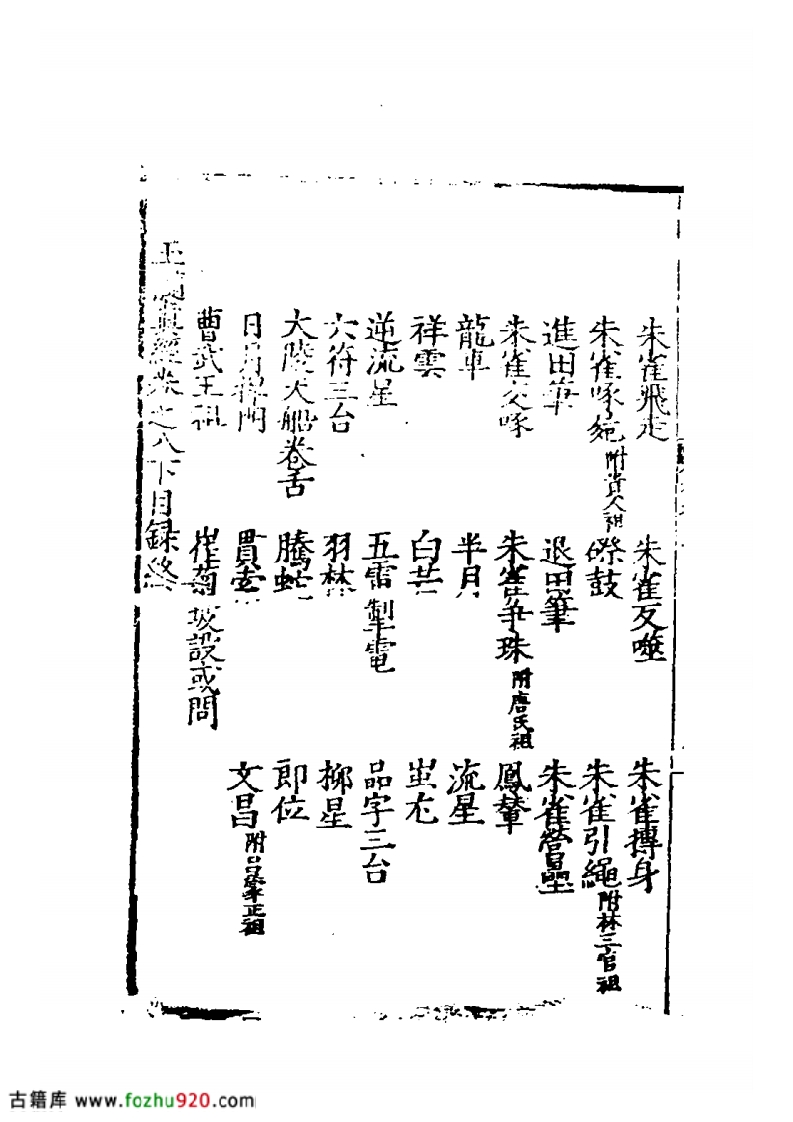 朱雀飛走 朱雀反噬 朱雀摶身
朱雀啄 附 祖 磔鼓 朱雀引繩 附林三官祖
進田筆 退田筆 朱雀營壘
朱雀交啄 朱雀爭珠 附唐氏祖 鳳輦
龍車 半月 流星
祥雲 白芒 蚩尤
逆流星 五雷掣電 品字三台
六符三台 羽林 柳星
大陸天船卷舌 騰蛇 即位
日月 門 貫索 文昌 附呂蒙正祖
曹武王祖 崔菊坡設或問
玉 真經卷之八下目録終
古籍库 www.fozhu920.com